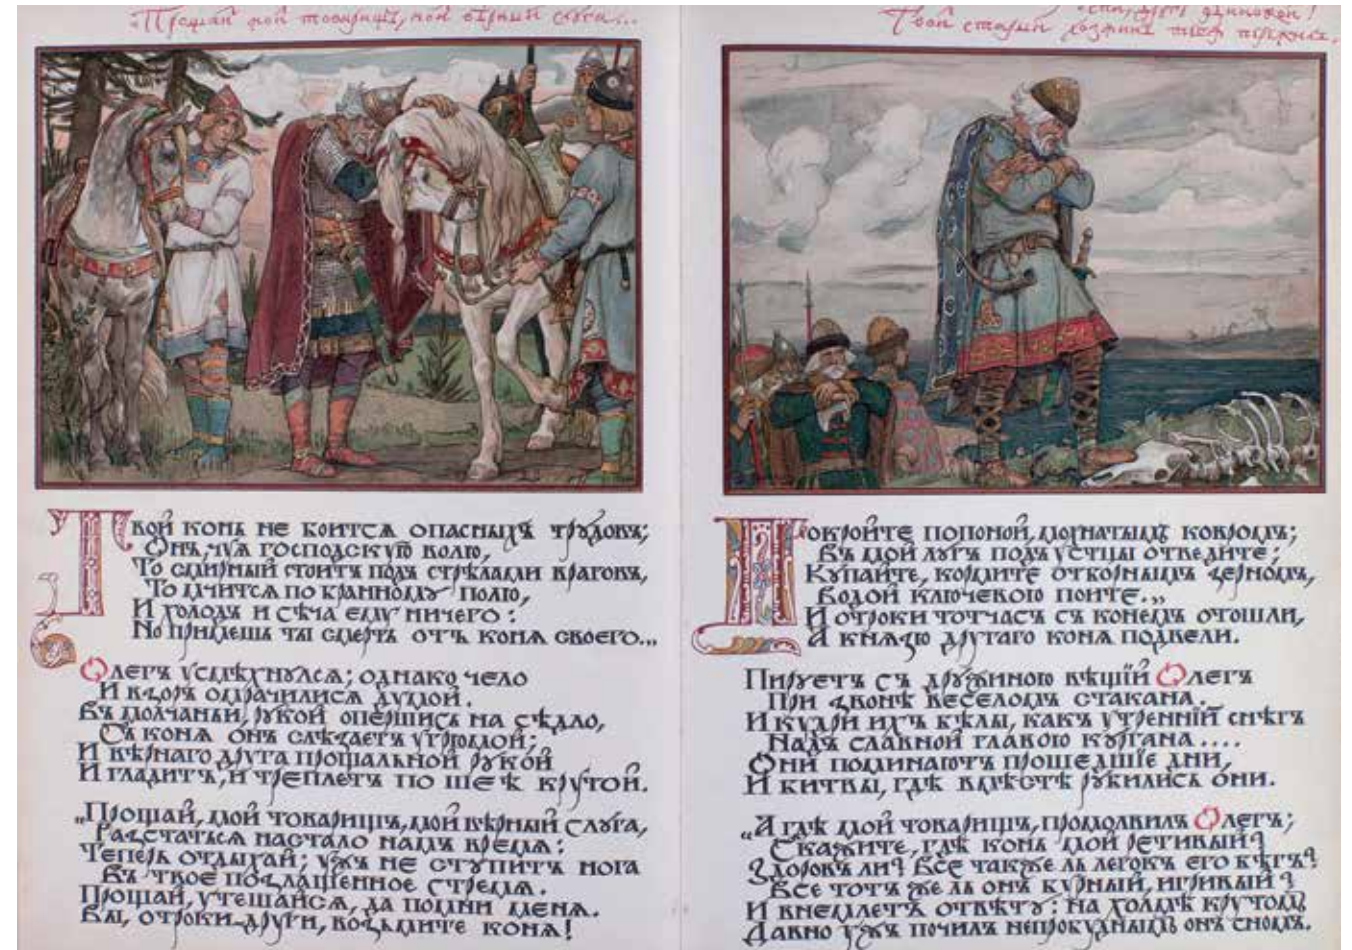 „Прощай мой товарищъ, мой вѣрный слуга...
Твой конь не боится опасныхъ трудовъ;
Онъ, чуя господскую волю,
То смирный стоитъ подъ стрѣлами враговъ,
То мчится по бранному полю,
И холодъ и сѣча ему ничего:
Но примешь ты смерть отъ коня своего...
Олегъ усмѣхнулся; однако чело
И взоръ омрачилися думой.
Въ молчаньи, рукой опершись на сѣдло,
Съ коня онъ слѣзаетъ угрюмой;
И вѣрнаго друга прощальной рукой
И гладитъ, и треплетъ по шеѣ крутой.
„Прощай, мой товарищъ, мой вѣрный слуга,
Разстаться настало намъ время:
Теперь отдыхай; ужъ не ступитъ нога
Въ твое позлащенное стремя.
Прощай, утешайся, да помни меня.
Вы, отроки-други, возьмите коня!
спи, другъ одинокой!
Твой старый хозяинъ тебя пережилъ.
Покройте попоной, мохнатымъ ковромъ;
Въ мой лугъ подъ устцы отведите;
Купайте, кормите отборнымъ зерномъ,
Водой ключевою поите...
И отроки тотчасъ съ конемъ отошли,
А князю другаго коня подвели.
Пируетъ съ дружиною вѣщій Олегъ
При звонѣ веселомъ стакана.
И кудри ихъ бѣлы, какъ утренній снѣгъ
Надъ славной главою кургана....
Они поминаютъ прошедшіе дни,
И битвы, гдѣ вмѣстѣ рубились они.
„А гдѣ мой товарищъ, промолвилъ Олегъ;
Скажите, гдѣ конь мой ретивый?
Здоровъ ли? Все также ль легокъ его бѣгъ?
Все тотъ же ль онъ бурный, игривый?
И внемлетъ отвѣту: на холмѣ крутомъ
Давно ужъ почилъ непробуднымъ онъ сномъ.